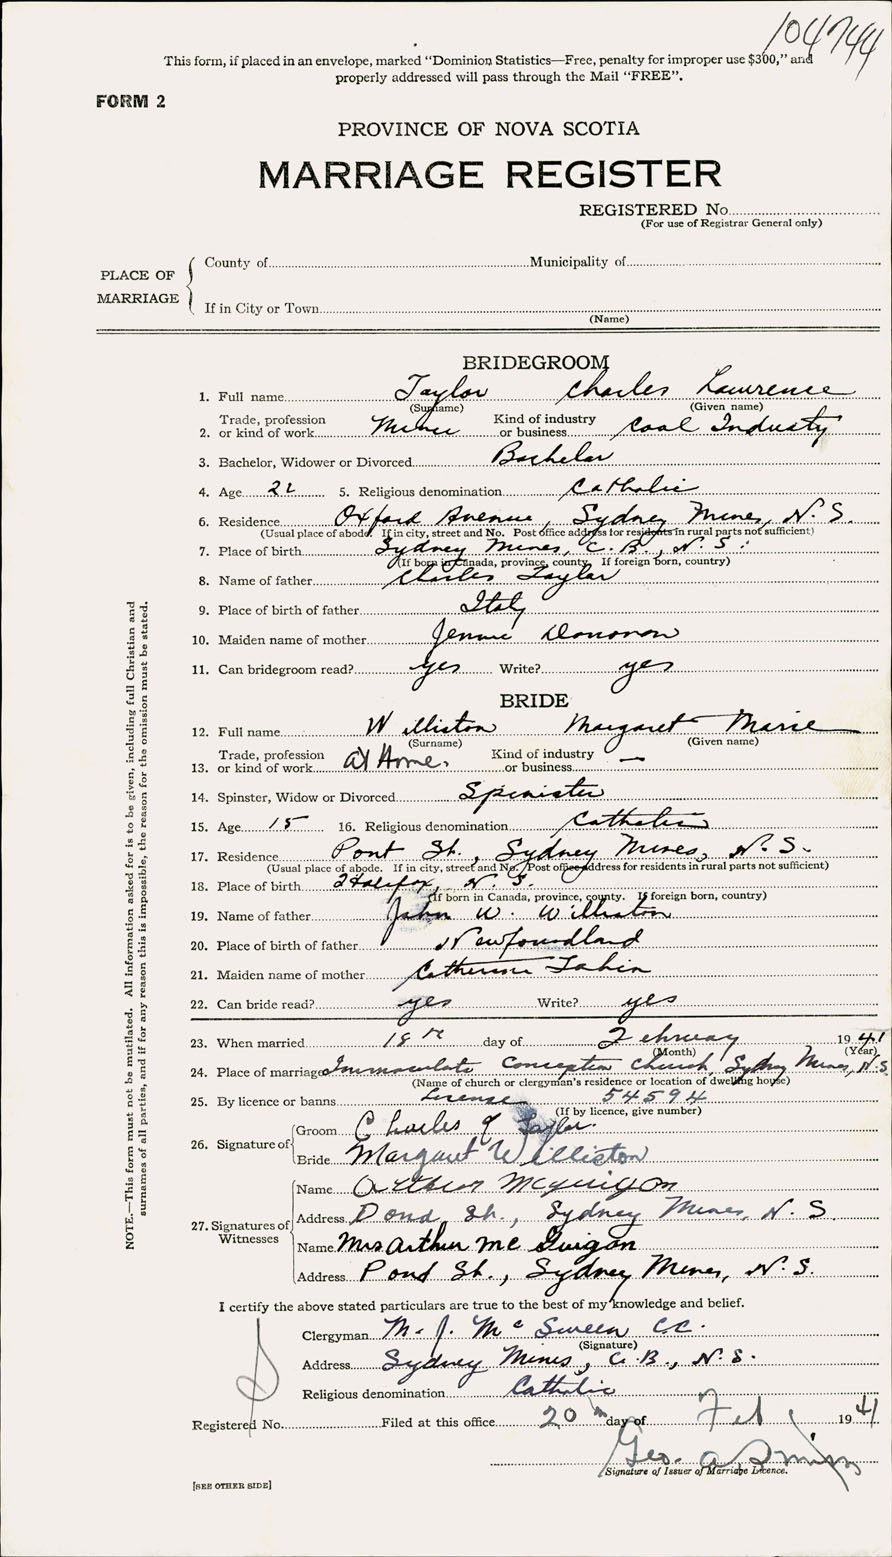 104744
This form, if placed in an envelope, marked "Dominion Statistics—Free, penalty for improper use $300," and
properly addressed will pass through the Mail "FREE".
FORM 2
PROVINCE OF NOVA SCOTIA
MARRIAGE REGISTER
REGISTERED No.
(For use of Registrar General only)
PLACE OF MARRIAGE
County of Municipality of
If in City or Town
(Name)
BRIDEGROOM
1. Full name Taylor Charles Lawrence
(Surname) (Given name)
2. Trade, profession or kind of work Miner Kind of industry or business Coal Industy
3. Bachelor, Widower or Divorced Bachelor
4. Age 21 5. Religious denomination Catholic
6. Residence Oxford Avenue, Sydney Mines, N.S.
(Usual place of abode. If in city, street and No. Post office address for residents in rural parts not sufficient)
7. Place of birth Sydney Mines, C.B., N.S.
(If born in Canada, province, county. If foreign born, country)
8. Name of father Charles Taylor
9. Place of birth of father Italy
10. Maiden name of mother Jennie Donovan
11. Can bridegroom read? yes Write? yes
BRIDE
12. Full name Williston Margaret Marie
(Surname) (Given name)
13. Trade, profession or kind of work at Home. Kind of industry or business —
14. Spinster, Widow or Divorced Spinister
15. Age 15 16. Religious denomination Catholic
17. Residence Pont St., Sydney Mines, N.S.
(Usual place of abode. If in city, street and No. Post office address for residents in rural parts not sufficient)
18. Place of birth Halifax, N.S.
(If born in Canada, province, county. If foreign born, country)
19. Name of father John W. Williston
20. Place of birth of father Newfoundland
21. Maiden name of mother Catherine Tobin
22. Can bride read? yes Write? yes
23. When married 18th day of February 1941
(Month) (Year)
24. Place of marriage Immaculate Conception Church, Sydney Mines, N.S.
(Name of church or clergyman's residence or location of dwelling house)
25. By licence or banns License 54594
(If by licence, give number)
26. Signature of
Groom Charles J Taylor.
Bride Margaret Williston
27. Signatures of Witnesses
Name Arthur McGuigan
Address Pond St., Sydney Mines, N.S.
Name Mrs Arthur Mc Guigan
Address Pond St., Sydney Mines, N.S.
I certify the above stated particulars are true to the best of my knowledge and belief.
Clergyman M. J. McSween C.C.
(Signature)
Address Sydney Mines, C.B., N.S.
Religious denomination Catholic
Registered No. Filed at this office 20th day of Feb 1941
Geo. A.
Signature of Issuer of Marriage Licence.
[SEE OTHER SIDE]
NOTE.—This form must not be mutilated. All information asked for is to be given, including full Christian and
surnames of all parties, and if for any reason this is impossible, the reason for the omission must be stated.